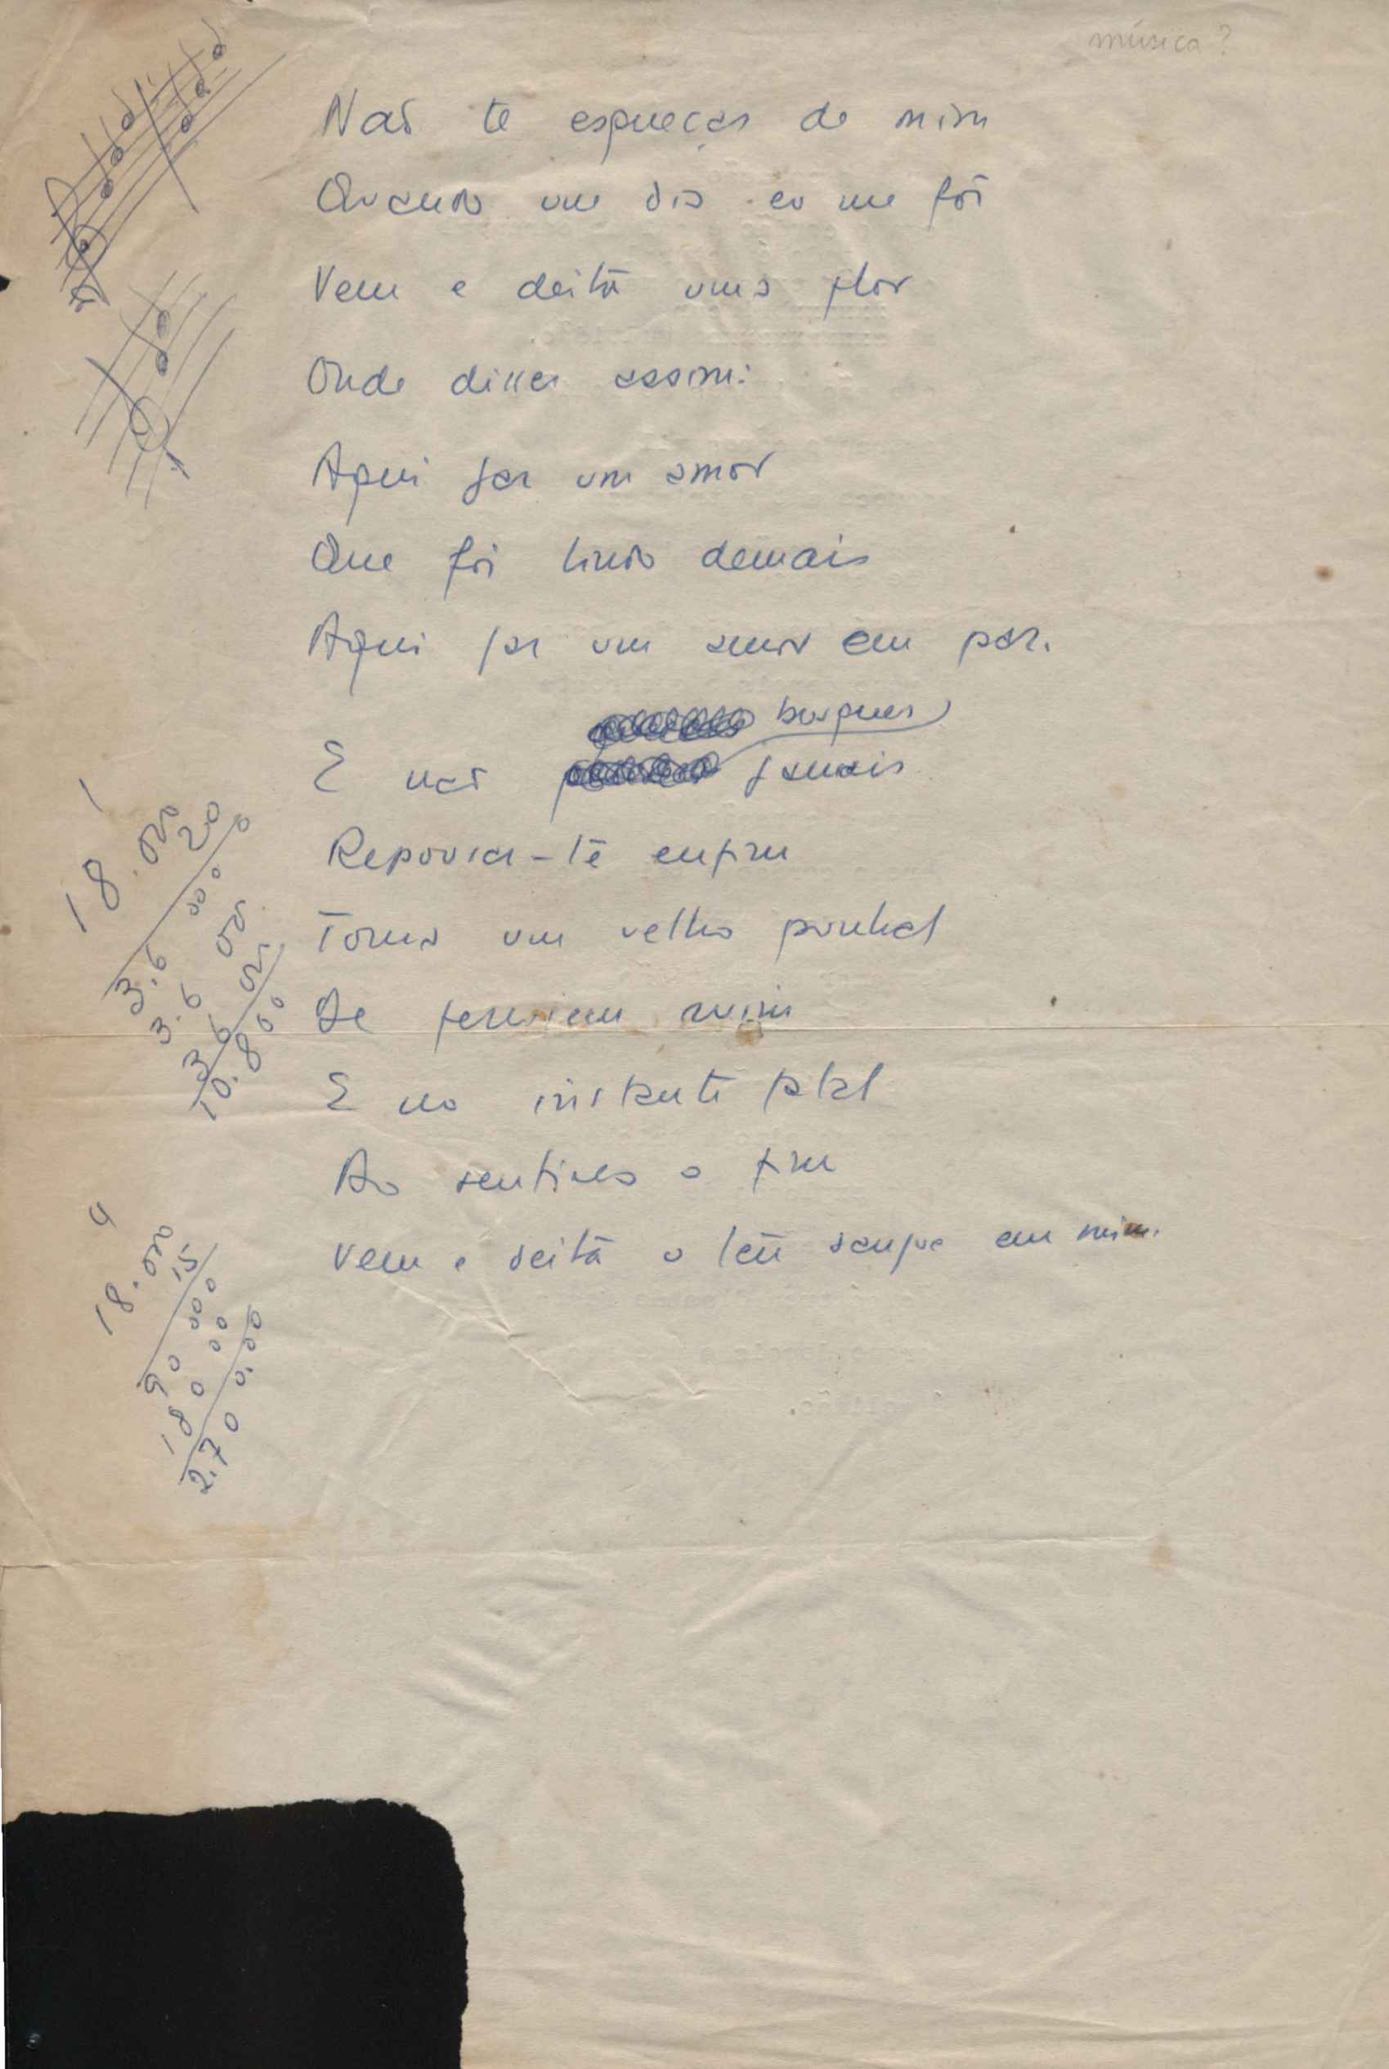 música?
Não te esqueças de mim
Quando um dia eu me for
Vem e deita uma flor
Onde disser assim:
Aqui jaz um amor
Que foi lindo demais
Aqui jaz um amor em paz.
busques
E não jamais
Repousa-te enfim
Toma um velho punhal
De mim
E no instante fatal
Ao sentires o fim
Vem e deita o teu sangue em mim.
18.000
20
18.000
15